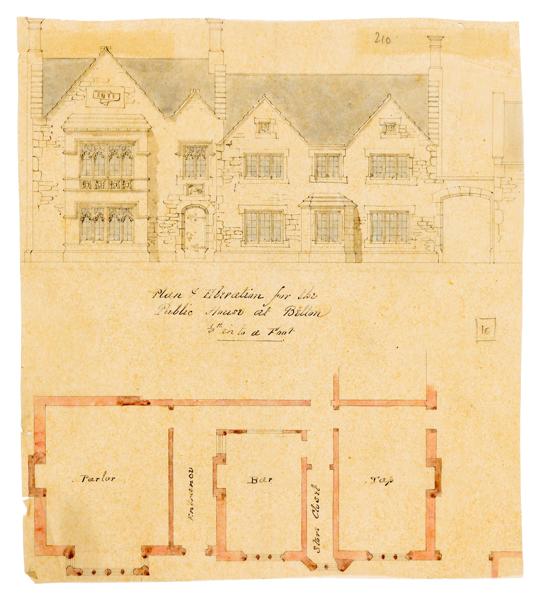 210
Plan & Elevation for the
Public House at Bitton
in to a Foot
10
Parlor
Entrance
Bar
Tap